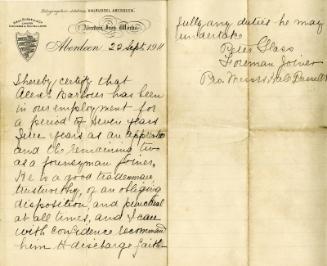 Aberdeen Iron Works
Aberdeen 22 Sept. 1911
I hereby certify that
Alexr Barbour has been
in our employment for
a period of Seven years
five years as an apprentice
and the remaining two
as a journeyman joiner.
He is a good tradesman,
trustworthy, of an obliging
disposition, and punctual
at all times, and I can
with confidence recommend
him to discharge faith
fully any duties he may
undertake
Glass
Foreman Joiner
Pro Messrs Hall Russell